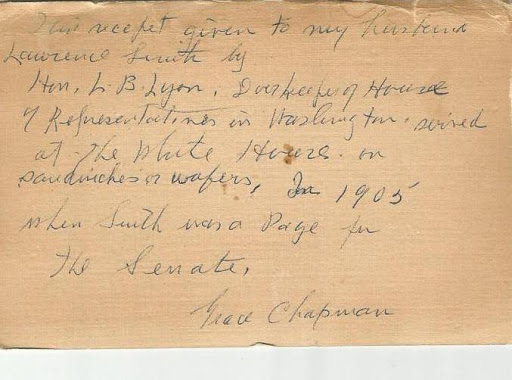 This receipt given to my husband
Lawrence Smith by
Hon. L. B. Lyon, Doorkeeper of House
of Representatives in Washington. served
at the White House. on
sandwiches or wafers, In 1905
when Smith was a Page for
The Senate.
Grace Chapman